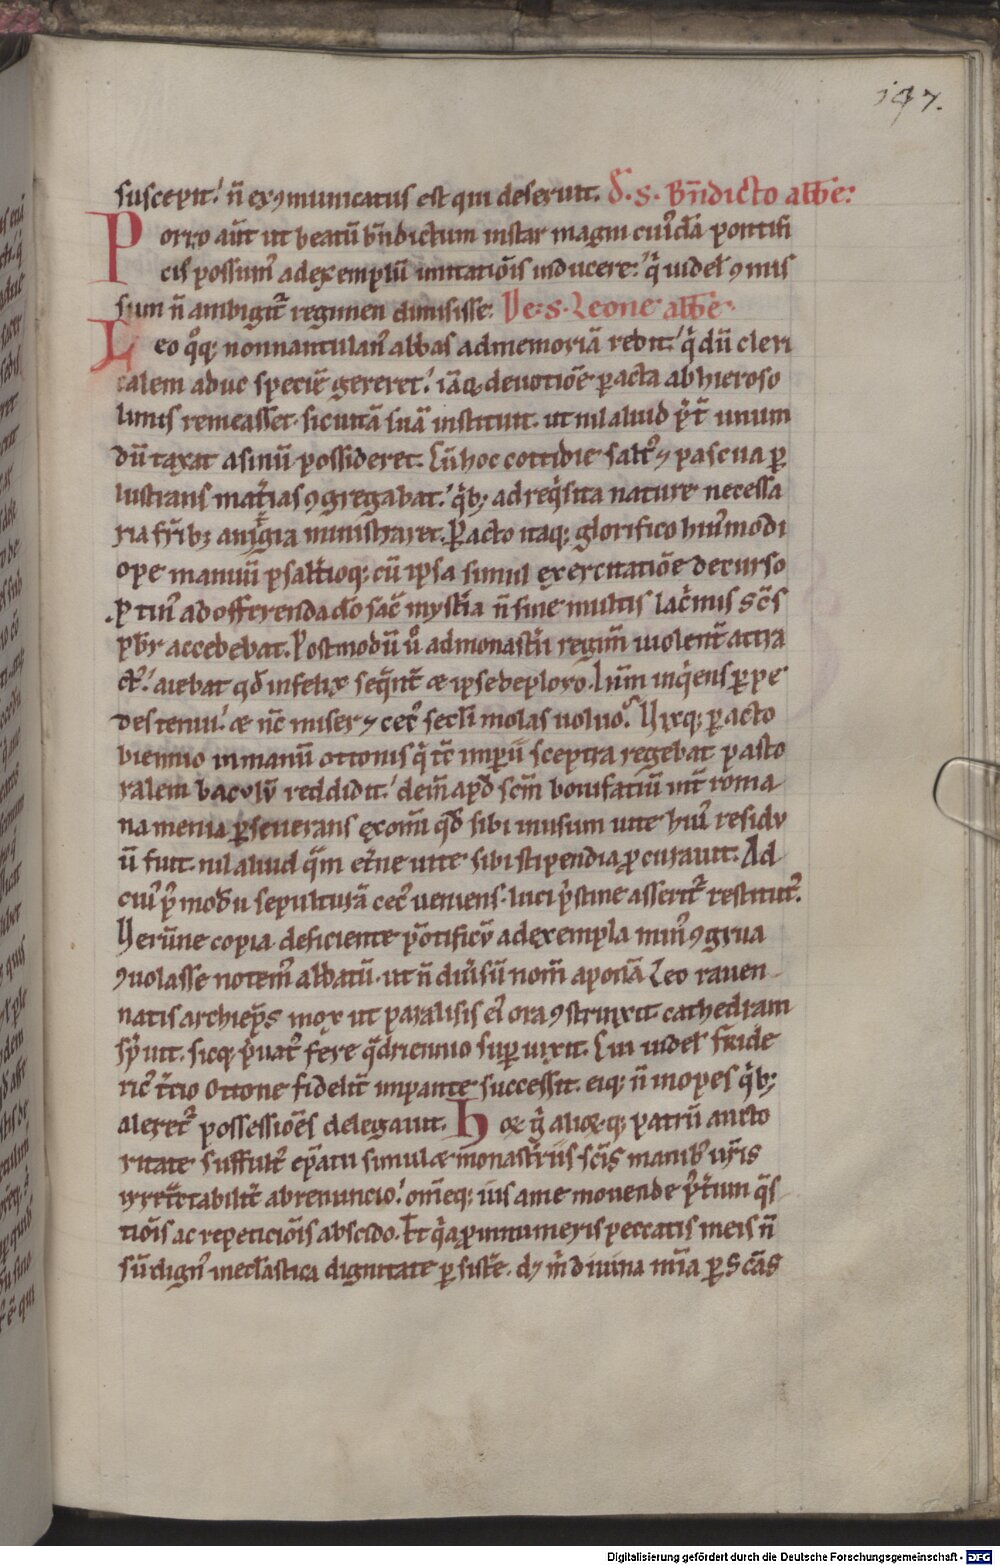 197.
suscepit.' n̄ exꝯmunicatus est qui deseruit. D̄. S. Bn̄dicto abb̄e:
Porro aūt ut beatū bn̄dictum instar magni cuiꝰdā pontifi
cis possumꝰ ad exemplū imitatiōis inducere.' q̄ uidel̄ ꝯmis
sum n̄ ambigit᷑ regimen dimisisse. De. S. Leone abb̄e.
Leo qͦꝫ nonnantulanꝰ abbas ad memoriā redit.' q̄ dū cleri
calem aduc speciē gereret.' iāqꝫ deuotiōe ꝑacta ab hieroso
limis remeasset. sic uitā suā instituit. ut nil aliud p̄t̄ unum
dū taxat asinū possideret. Cū hoc cottidie saltꝰ ⁊ pascua ꝑ
lustrans mat̄ias ꝯgregabat.' q̄bꝫ ad req̄sita nature necessa
ria fr̄ibꝫ ministraret. Ꝑacto itaqꝫ glorifico huiꝰmodi
ope manuū psalt̄ioqꝫ cū ipsa simul exercitatiōe decurso
ad offerenda dō sac̄ myst̄ia n̄ sine multis lac̄mis sc̄s
pb̄r accedebat. Postmodū ů ad monast̄ii regim̄ uiolent̄ attra
ctꝰ.' aiebat qd̄ infelix seq̄nt̄ æ ipse deploro. Lūm inq̄ens ꝑpe
des tenui.' æ nc̄ miser ⁊ cecꝰ secl̄i molas uoluo. Vixqꝫ ꝑacto
biennio in manū ottonis q̄ tc̄ imꝑii sceptra regebat pasto
ralem baculū reddidit.' dem̄ apd̄ scm̄ bonifatiū int̄ roma
na menia ꝑseuerans ęxom̄i qd̄ sibi inusum uite huiꝰ residu
ū fuit. nil aliud q̄m et̄ne uite sibi stipendia ꝓcurauit. Ad
cuiꝰ p̄modū sepulturā cecꝰ ueniens. luci p̄stine asserit᷑ restitutꝰ.
Verūne copia deficiente pōtificū ad exempla minꝰ ꝯgrua
ꝯuolasse notemꝰ abbatū. ut n̄ diuisū nom̄ aponā Leo rauen
natis archiep̄s mox ut paralisis eiꝰ ora ꝯstrinxit cathedram
sp̄uit. sicqꝫ p̄uatꝰ fere q̄driennio suꝑuixit. Cui uidel̄ fride
ricꝰ t̄cio Ottone fidelit̄ impante successit. eiqꝫ n̄ inopes q̄bꝫ
aleret᷑ possessiōes delegauit. Hoꝝ g̊ alioꝝqꝫ patrū aucto
ritate suffultꝰ ep̄atu simul æ monast̄iis sc̄is manibꝰ ur̄is
irret̄ctabilit̄ abrenuncio.' om̄eqꝫ ius a me mouende p̄t̄ium q̄s
tiōis ac repeticiōis abscido. Et q̄a ꝓ innumeris peccatis meis n̄
sū dignꝰ in ecl̄astica dignitate ꝑsist̄e. d⁊ m̄ diuina mīa ꝑ scās
Digitalisierung gefördert durch die Deutsche Forschungsgemeinschaft - DFG